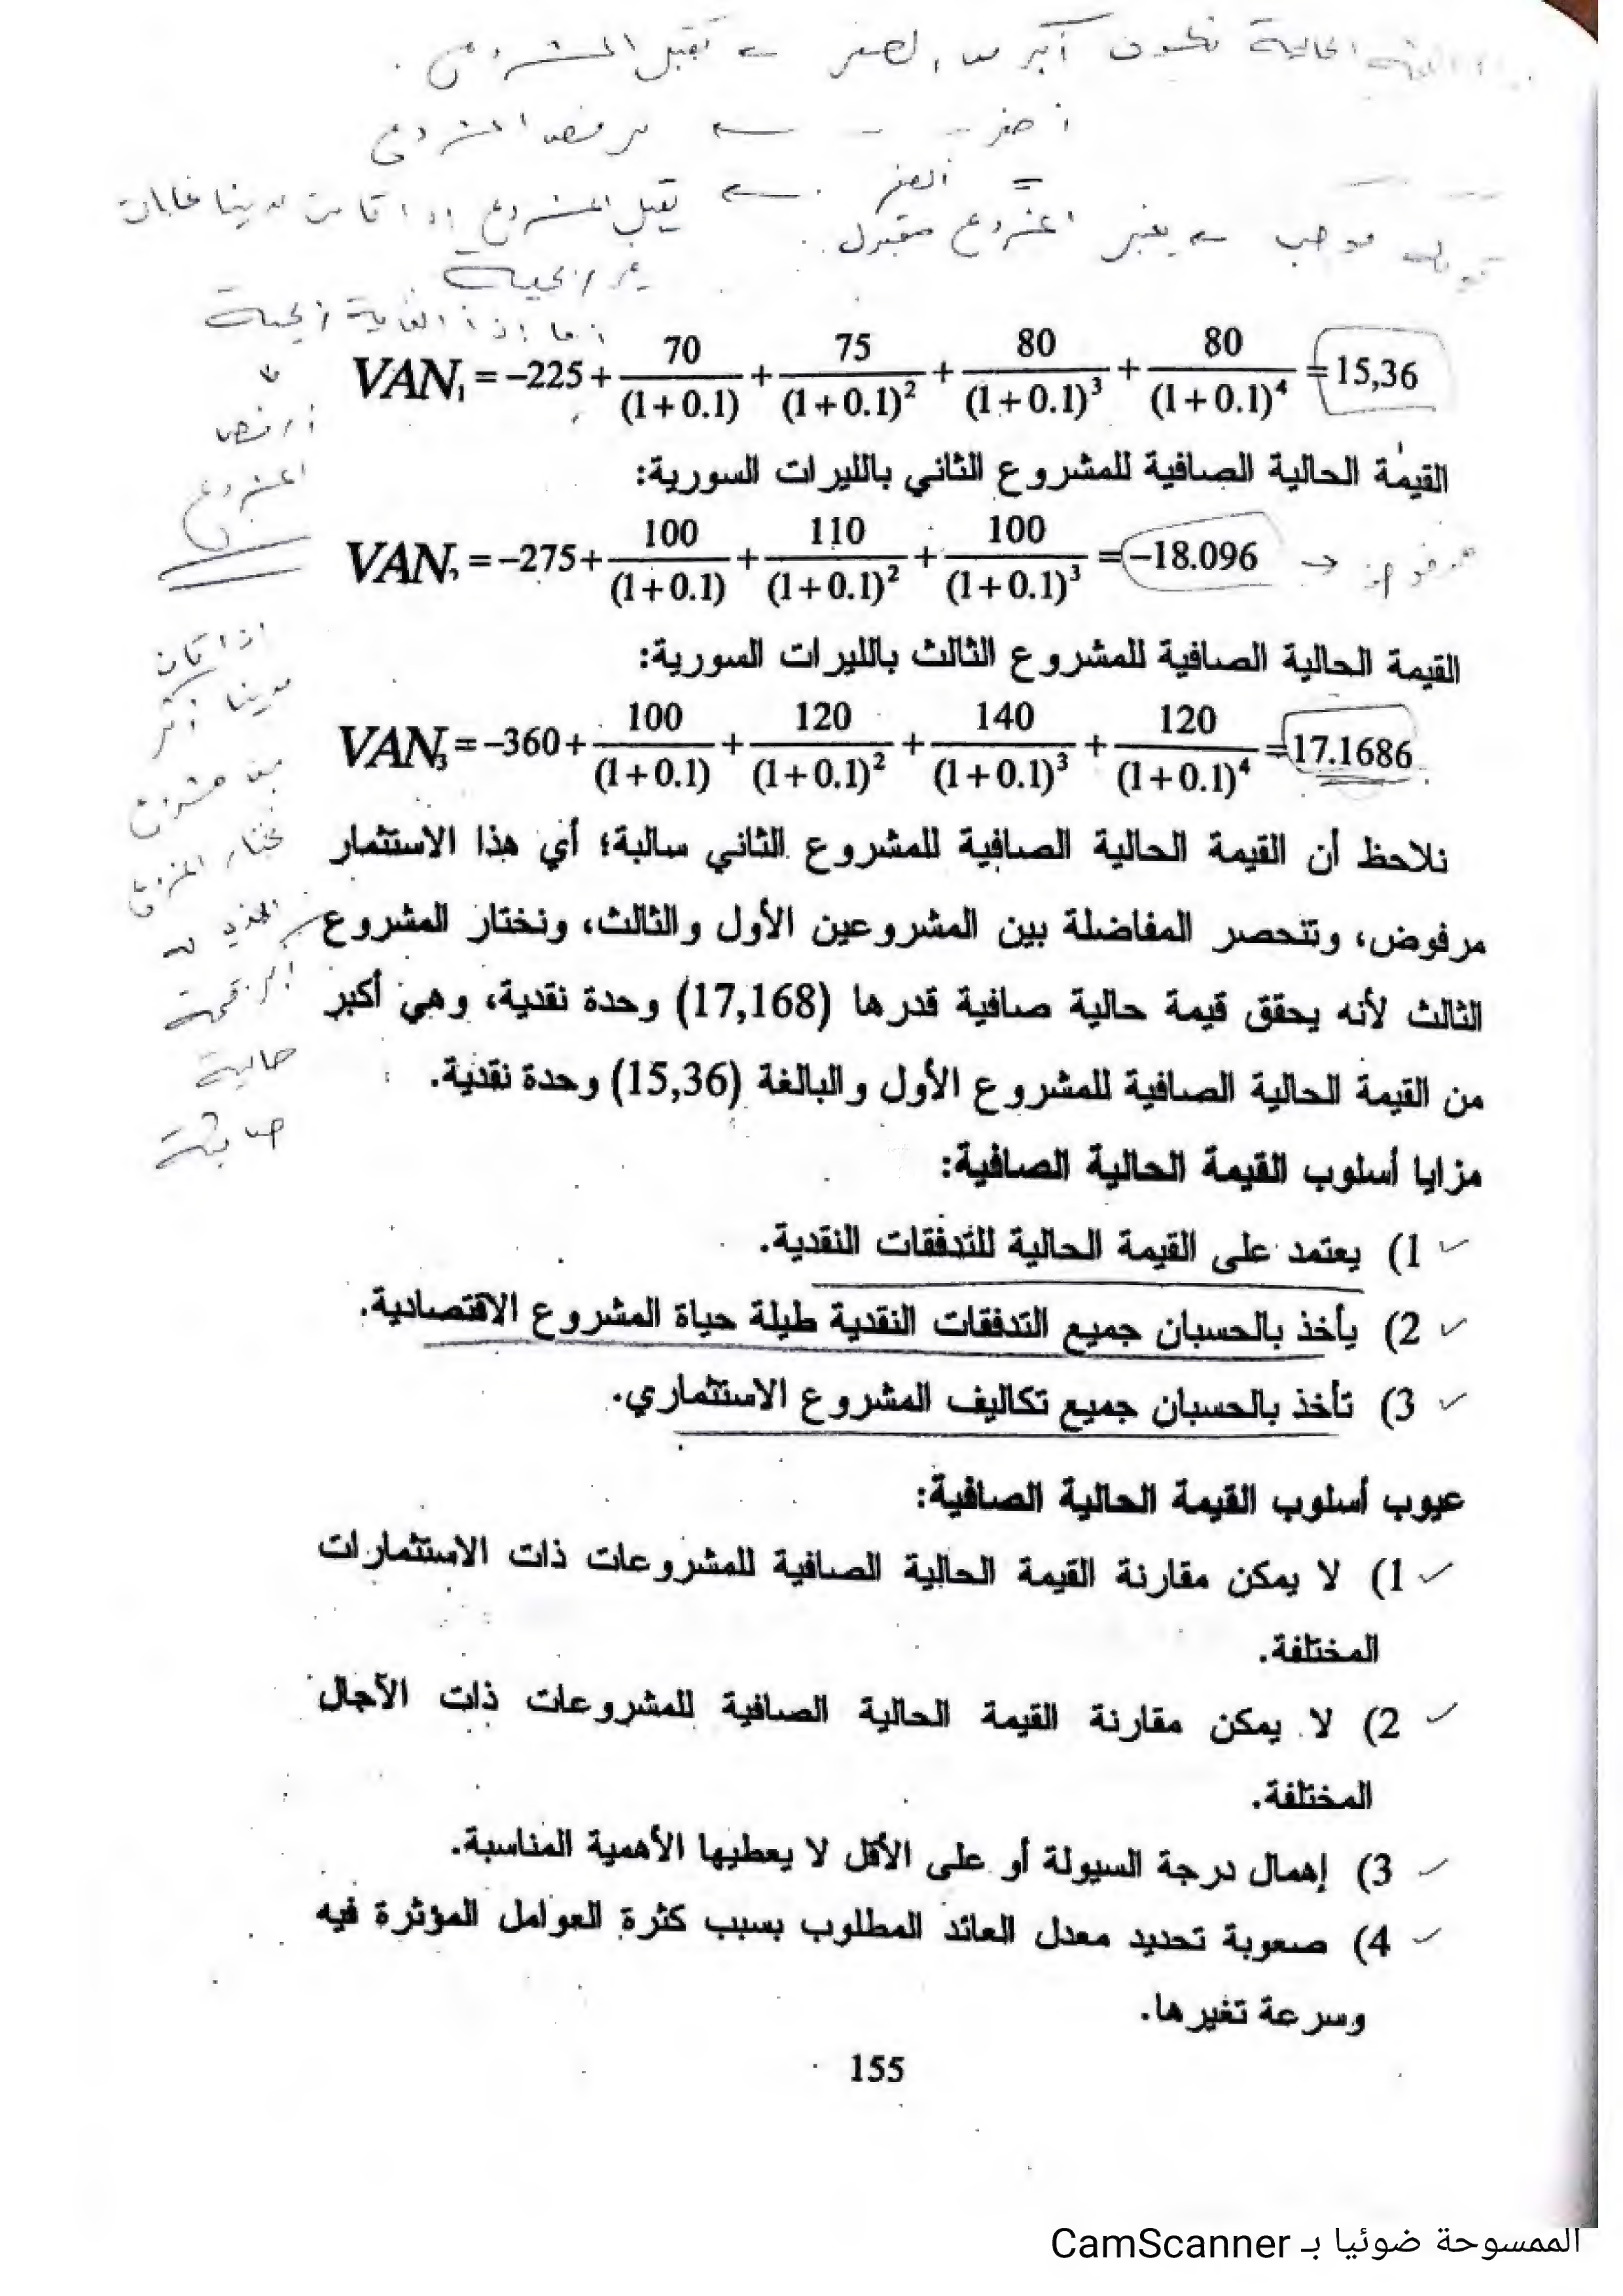 الحالية تكون أكبر من الصفر ← نقبل المشروع.
أصغر - - ← نرفض المشروع
= الصفر ← نقبل المشروع إذا كانت لدينا غايات
موجب ← يعتبر المشروع مقبول..
غير ربحية
أما إذا الغاية ربحية
↓
أرفض
المشروع
VAN₁ = −225 + 70/(1+0.1) + 75/(1+0.1)² + 80/(1+0.1)³ + 80/(1+0.1)⁴ = 15,36
القيمة الحالية الصافية للمشروع الثاني بالليرات السورية:
VAN₂ = −275 + 100/(1+0.1) + 110/(1+0.1)² + 100/(1+0.1)³ = −18.096 → مرفوض
القيمة الحالية الصافية للمشروع الثالث بالليرات السورية:
VAN₃ = −360 + 100/(1+0.1) + 120/(1+0.1)² + 140/(1+0.1)³ + 120/(1+0.1)⁴ = 17.1686
اذا كان
لدينا أكثر
من مشروع
نختار المشروع
الذي له
أكبر قيمة
حالية
صافية
نلاحظ أن القيمة الحالية الصافية للمشروع الثاني سالبة؛ أي هذا الاستثمار
مرفوض، وتنحصر المفاضلة بين المشروعين الأول والثالث، ونختار المشروع
الثالث لأنه يحقق قيمة حالية صافية قدرها (17,168) وحدة نقدية، وهي أكبر
من القيمة الحالية الصافية للمشروع الأول والبالغة (15,36) وحدة نقدية.
مزايا أسلوب القيمة الحالية الصافية:
1) يعتمد على القيمة الحالية للتدفقات النقدية.
2) يأخذ بالحسبان جميع التدفقات النقدية طيلة حياة المشروع الاقتصادية.
3) تأخذ بالحسبان جميع تكاليف المشروع الاستثماري.
عيوب أسلوب القيمة الحالية الصافية:
1) لا يمكن مقارنة القيمة الحالية الصافية للمشروعات ذات الاستثمارات
المختلفة.
2) لا يمكن مقارنة القيمة الحالية الصافية للمشروعات ذات الآجال
المختلفة.
3) إهمال درجة السيولة أو على الأقل لا يعطيها الأهمية المناسبة.
4) صعوبة تحديد معدل العائد المطلوب بسبب كثرة العوامل المؤثرة فيه
وسرعة تغيرها.
155
الممسوحة ضوئيا بـ CamScanner